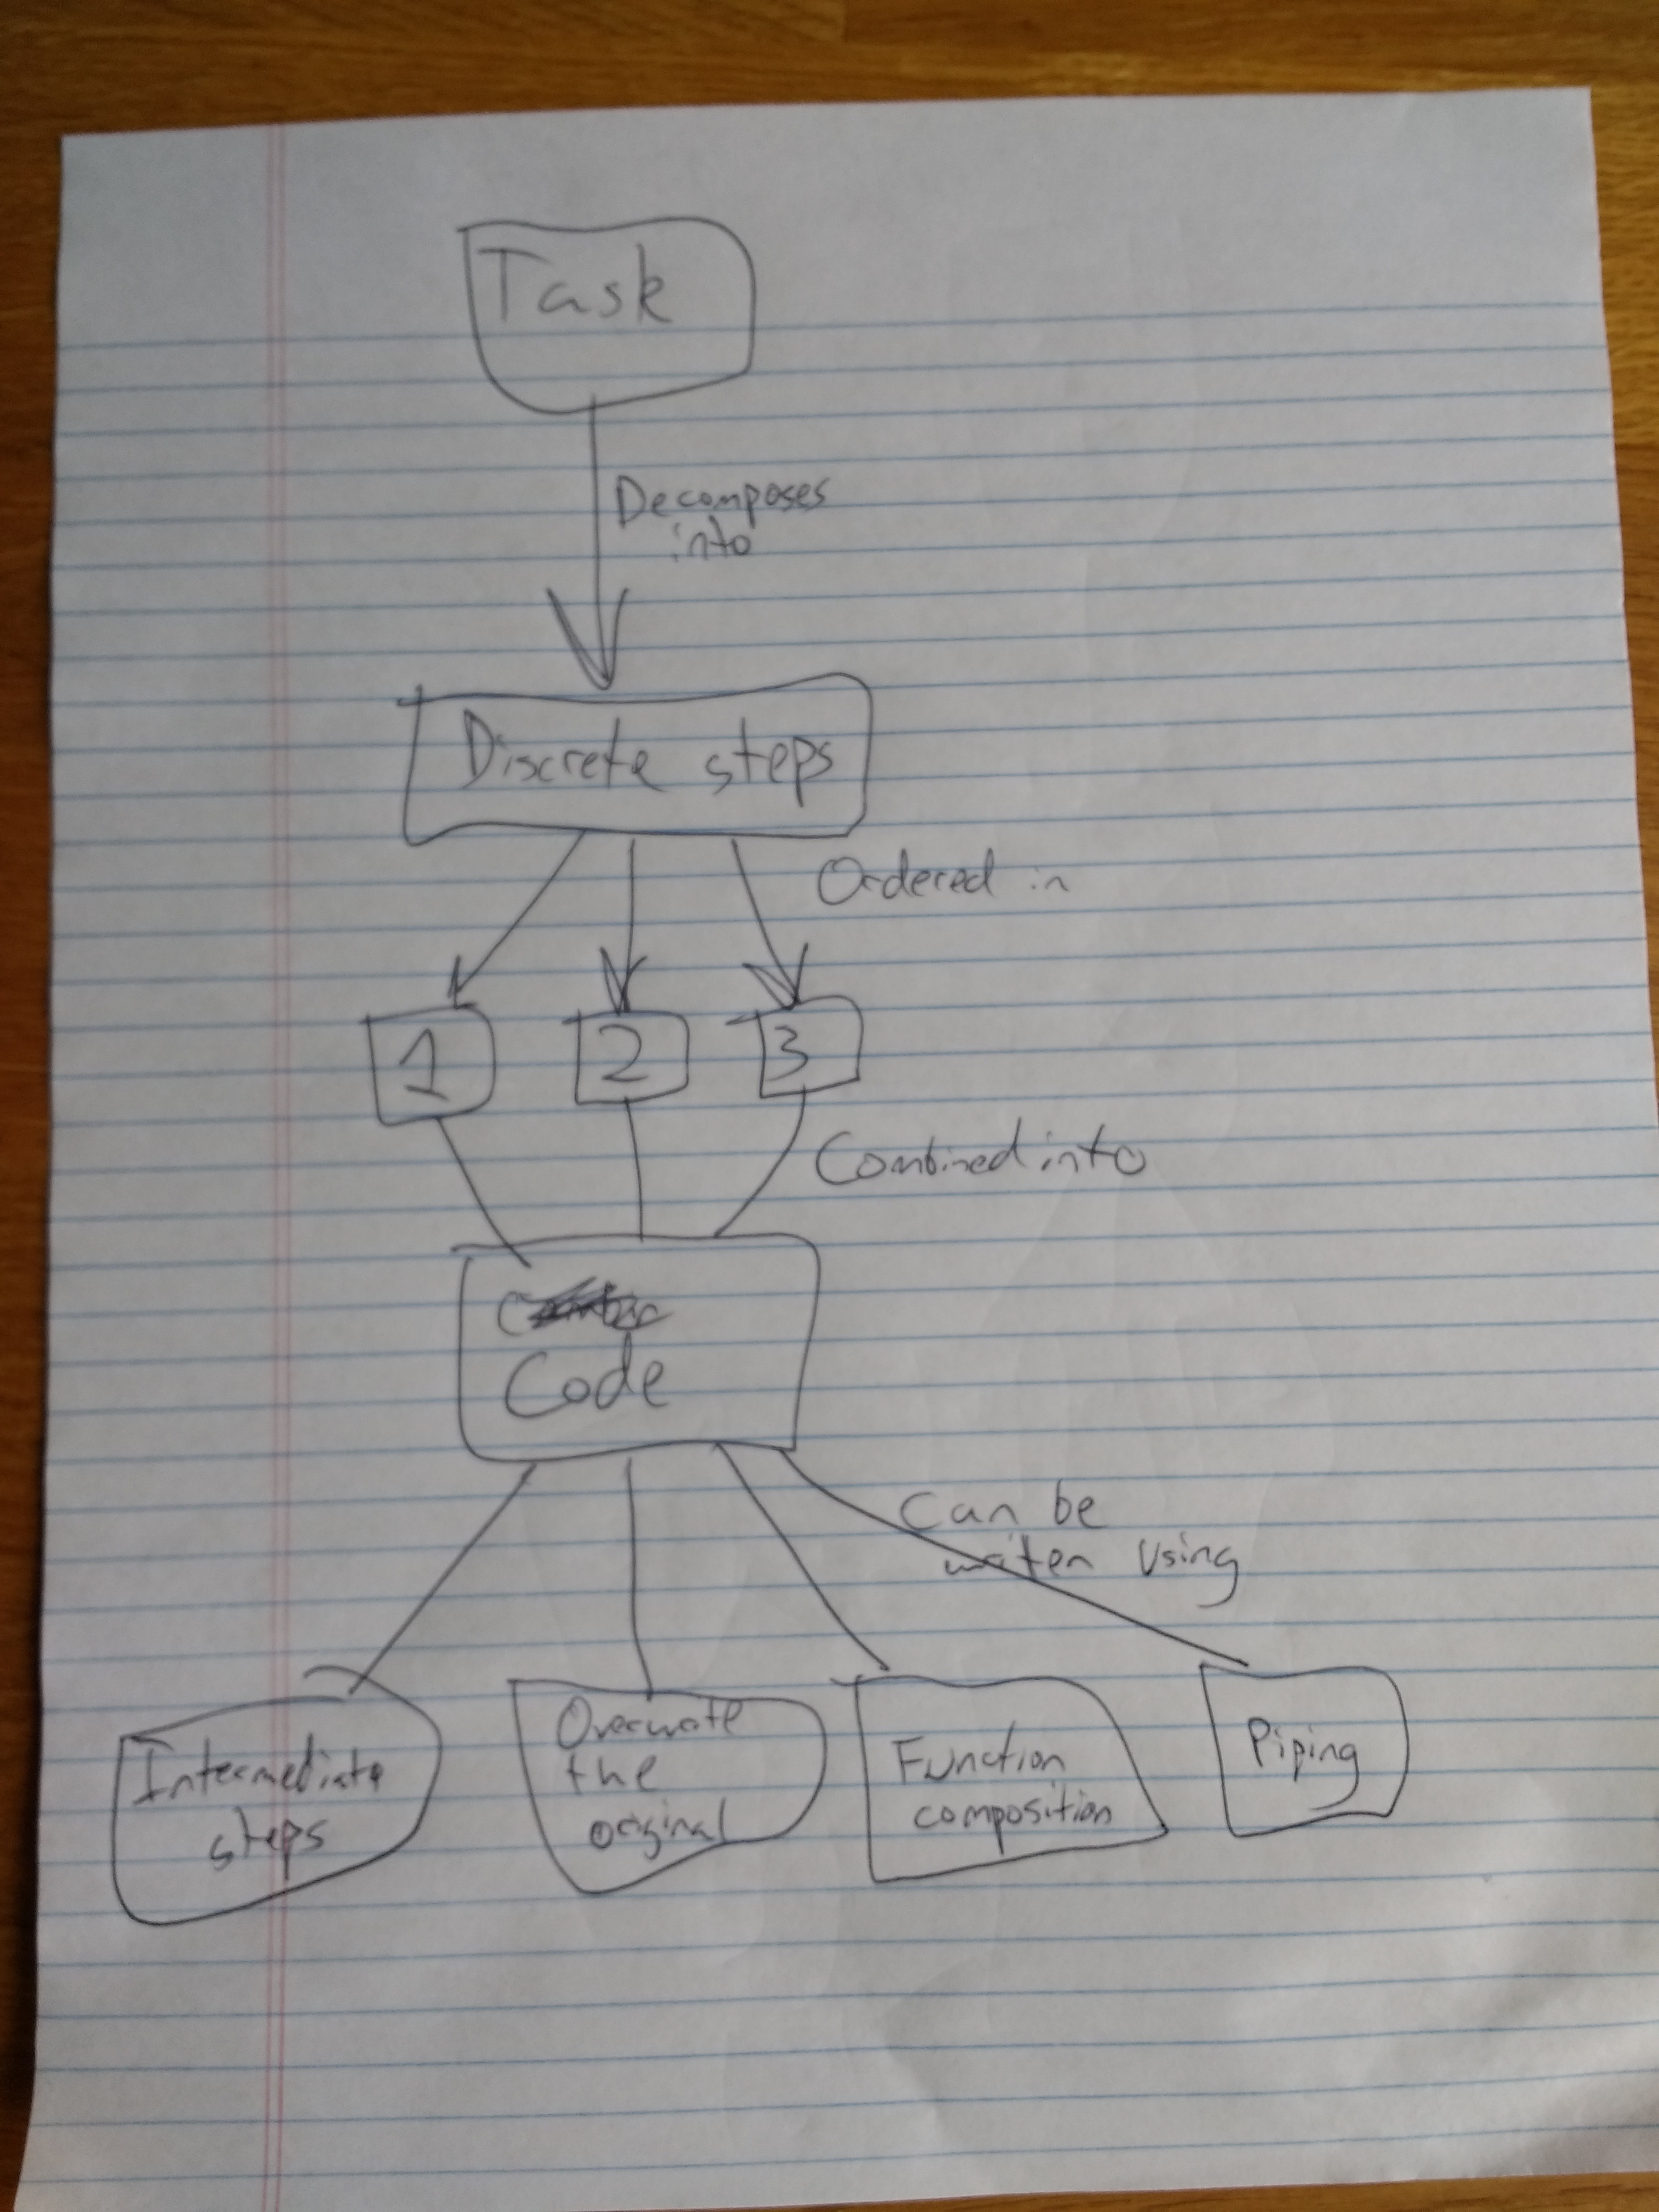 Task
Decomposes
into
Discrete steps
Ordered in
1 2 3
Combined into
Code
Can be
writen using
Intermediate
steps
Overwrite
the
original
Function
composition
Piping